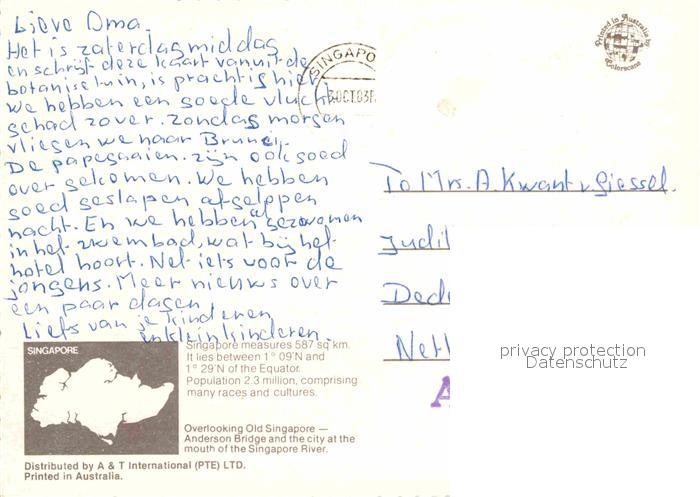 Lieve Oma.
Het is zaterdagmiddag
en schrijf deze kaart vanuit de
botanise tuin, is prachtig hier
we hebben een goede vlucht
gehad zover. zondag morgen
vliegen we naar Brunei.
De papegaaien. zijn ook goed
over gekomen. We hebben
goed geslapen afgelopen
nacht. En we hebben al gezwommen
in het zwembad, wat bij het
hotel hoort. Net iets voor de
jongens. Meer nieuws over
een paar dagen,
Liefs van je kinderen
en kleinkinderen.
SINGAPO
Printed in Australia by
Colorscans
To Mrs. A. Kwant v. Giessel.
Judi
Ded
Net
privacy protection
Datenschutz
A
SINGAPORE
Singapore measures 587 sq km.
It lies between 1° 09'N and
1° 29'N of the Equator.
Population 2.3 million, comprising
many races and cultures.
Overlooking Old Singapore —
Anderson Bridge and the city at the
mouth of the Singapore River.
Distributed by A & T International (PTE) LTD.
Printed in Australia.